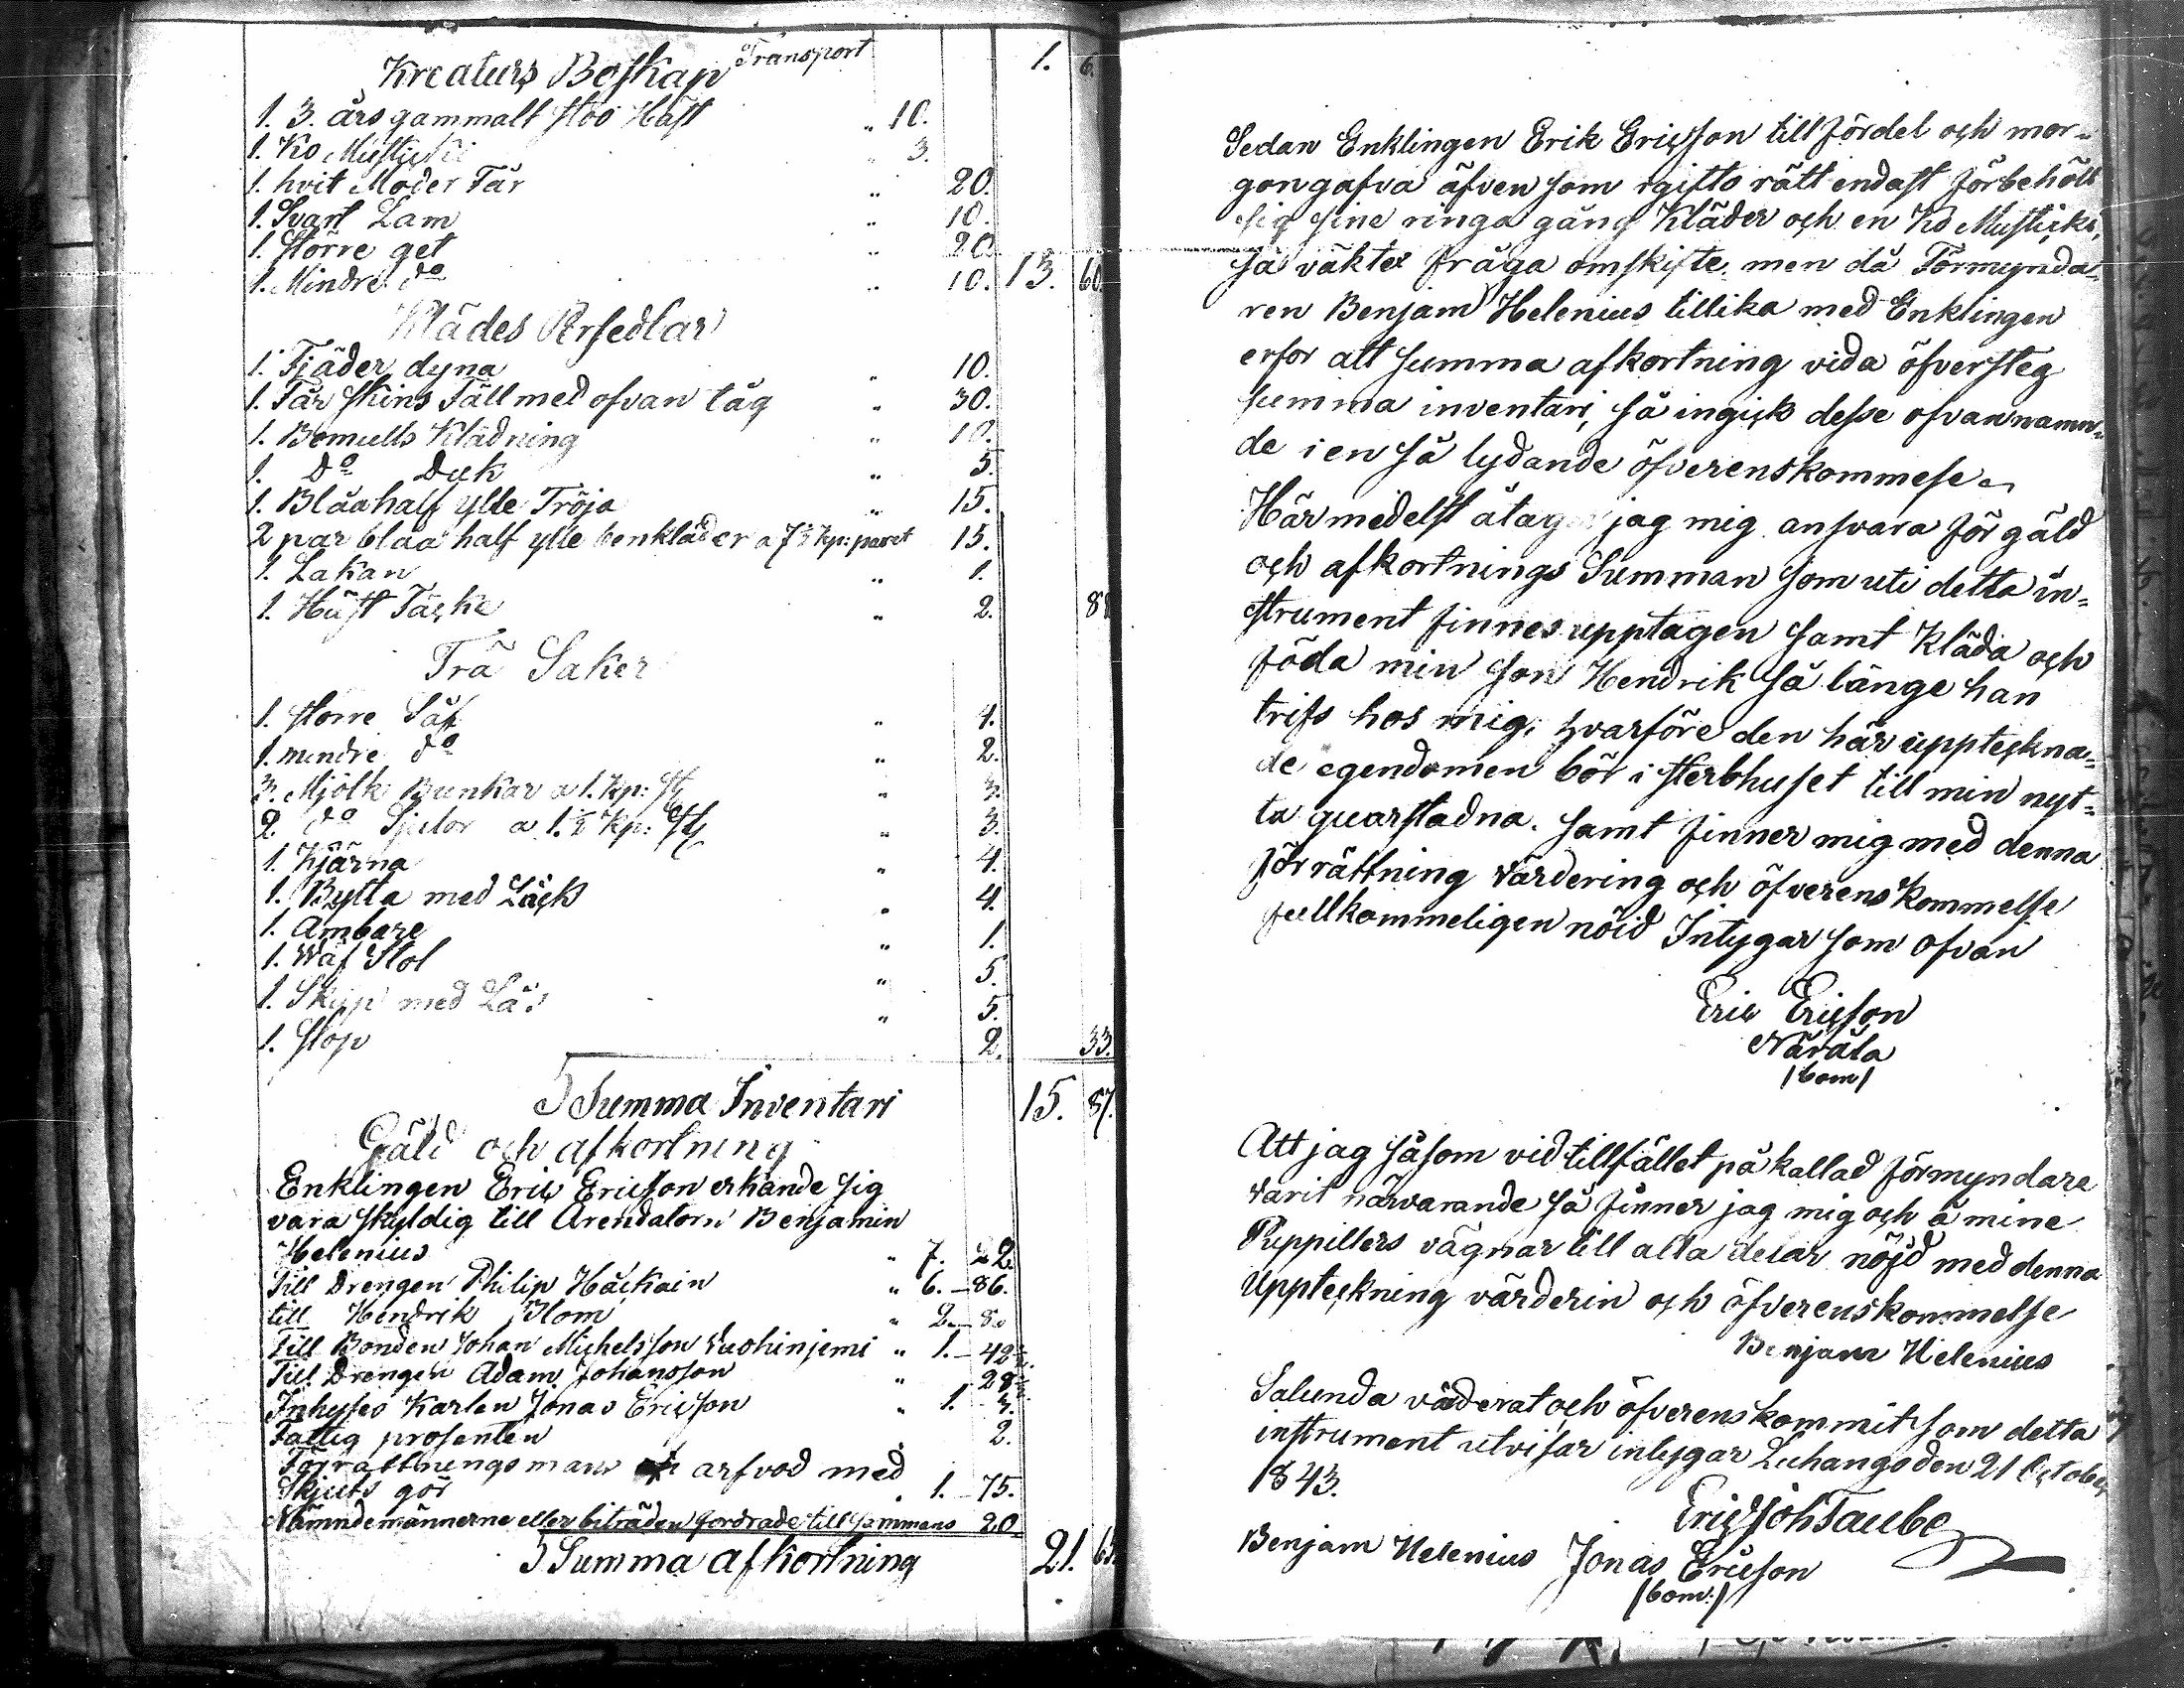 Transport 1. 6.
Kreaturs Boskap
1. 3. års gammalt sto Häst „ 10.
1. Ko Musticki „ 3.
1. hvit Moder Får „ 20.
1. Svart Lam „ 10.
1. Större get „ 20.
1. Mindre do „ 10. 13. 60.
Klädes Persedlar
1. Fjäder dyna „ 10.
1. Får skins Fäll med ofvan tåg „ 30.
1. Bomulls Klädning „ 10.
1. Do Duk „ 5.
1. Blåa half ylle Tröja „ 15.
2 par blåa half ylle benkläder a 7½ kp: paret 15.
1. Lakan „ 1.
1. Häst Täcke „ 2. 88
Trä Saker
1. större Såf „ 4.
1. mindre do „ 2.
3. Mjölk Bunkar a 1. Kp: St „ 3.
2. do Sjulor a 1.½ Kp: St „ 3.
1. Kjärna „ 4.
1. Bytta med Låck „ 4.
1. Ämbare „ 1.
1. Wäf Stol „ 5.
1. Skåp med Lås „ 5.
1. Stop 2. 33.
Summa Inventari 15. 87.
Gäld och afkortning
Enklingen Eric Ericsson erkände sig
vara skyldig till Arendatorn Benjamin
Helenius „ 7. 22
Till Drengen Philip Häckäin „ 6. - 86.
till Hendrik Blom „ 2. - 8.
Till Bonden Johan Michelsson Vuohiniemi „ 1. - 42
Till Drengen Adam Johansson „ 28
Inhyses Karlen Jonas Ericsson „ 1. - 3.
Fattig prosenten „ 2.
Förrättningsmans arfvod med
Skjuts gör „ 1. - 75.
Nämndemännerne eller biträden fordrade tillsammans 20.
Summa afkortning 21. 65
Sedan Enklingen Erik Ericsson till fördel och mor-
gongafva äfven som giftorätt endast förbehölt
sig sine ringa gång Kläder och en Ko Musticki,
så väktes fråga om skifte, men då Förmynda-
ren Benjam Helenius tillika med Enklingen
erfor att summa afkortning vida öfversteg
summa inventari, så ingick desse ofvannamn-
de i en så lydande öfverenskommese
Härmedelst åtager jag mig ansvara för gäld
och afkortnings Summan som uti detta in-
strument finnes upptagen samt kläda och
föda min son Hendrik så länge han
trifs hos mig, hvarföre den här uppteckna-
de egendomen bör i sterbhuset till min nyt-
ta quarstadna. samt finner mig med denna
förrättning värdering och öfverenskommelse
fullkommeligen nöid Intygar som ofvan
Eric Ericson
Närälä
(bom)
Att jag såsom vid tillfället påkallad förmyndare
varit närvarande så finner jag mig och å mine
Puppillers vägnar till alla delar nöjd med denna
uppteckning värderin och öfverenskommelse
Benjam Helenius
Salunda väderat och öfverenskommit som detta
instrument utvisar intygar Luhango den 21 October
1843.
Eric Joh Taube
Benjam Helenius Jonas Ericson
(bom:)